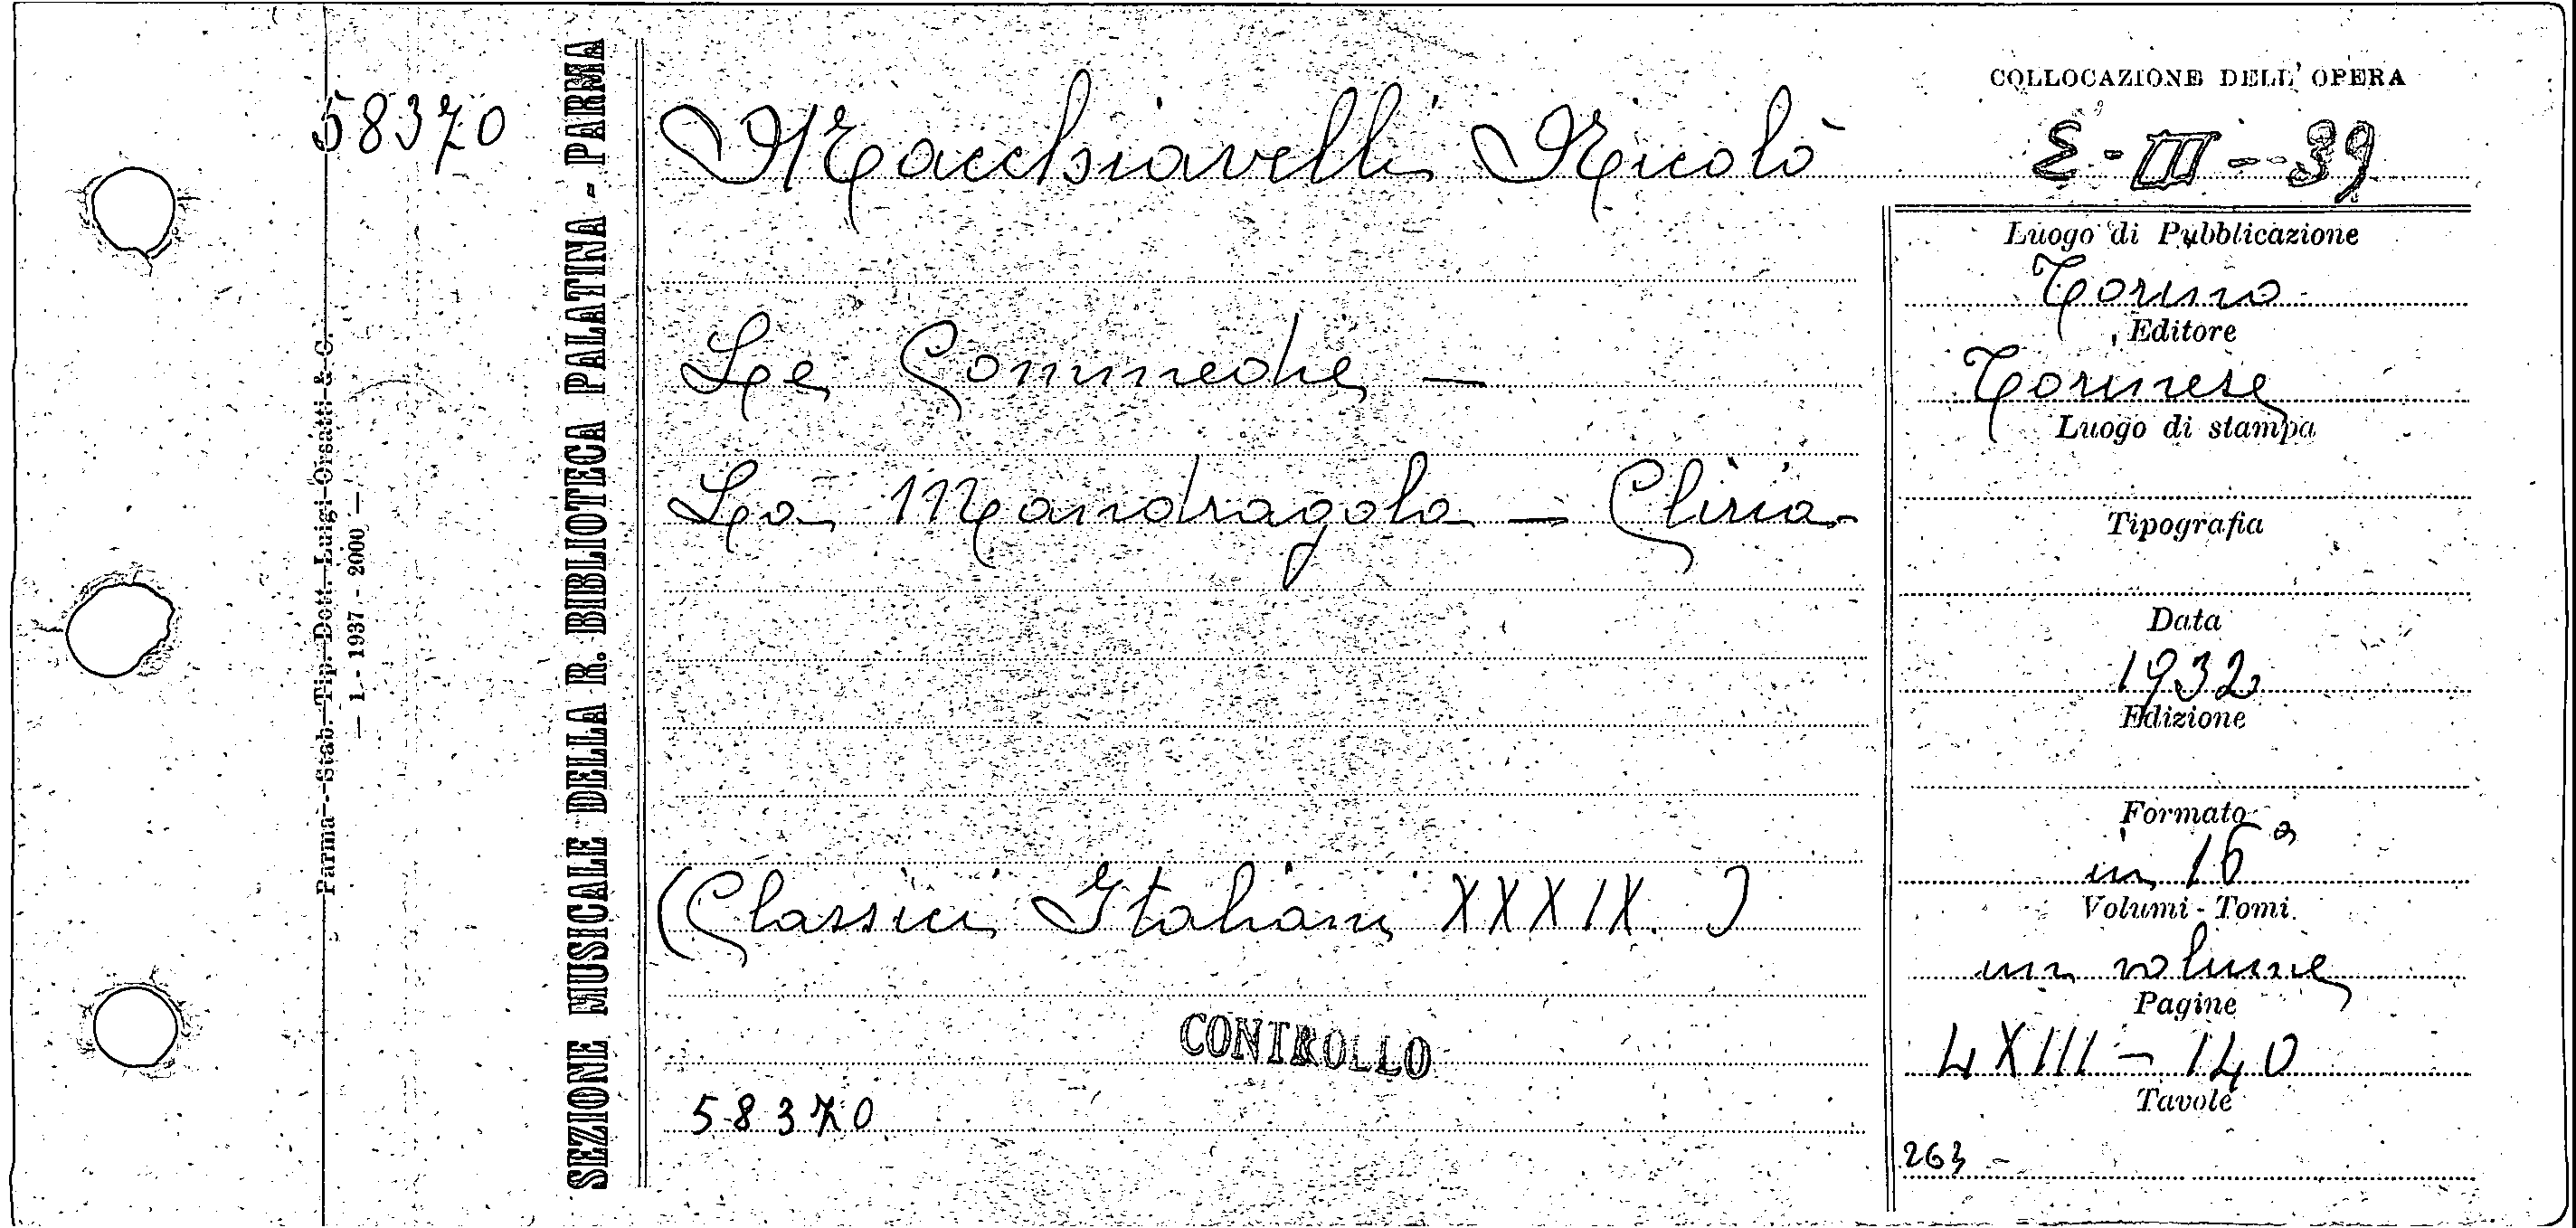 58370
Parma - Stab. Tip. Dott. Luigi Orsatti & C.
— 1 - 1937 - 2000 —
SEZIONE MUSICALE DELLA R. BIBLIOTECA PALATINA - PARMA
Macchiavelli Nicolò
Le Commedie —
La Mandragola — Clizia
(Classici Italiani XXXIX.)
CONTROLLO
58370
COLLOCAZIONE DELL' OPERA
E - III - 39
Luogo di Pubblicazione
Torino
Editore
Torinese
Luogo di stampa
Tipografia
Data
1932
Edizione
Formato
in 16°
Volumi - Tomi
un volume
Pagine
LXIII - 140
Tavole
263 -